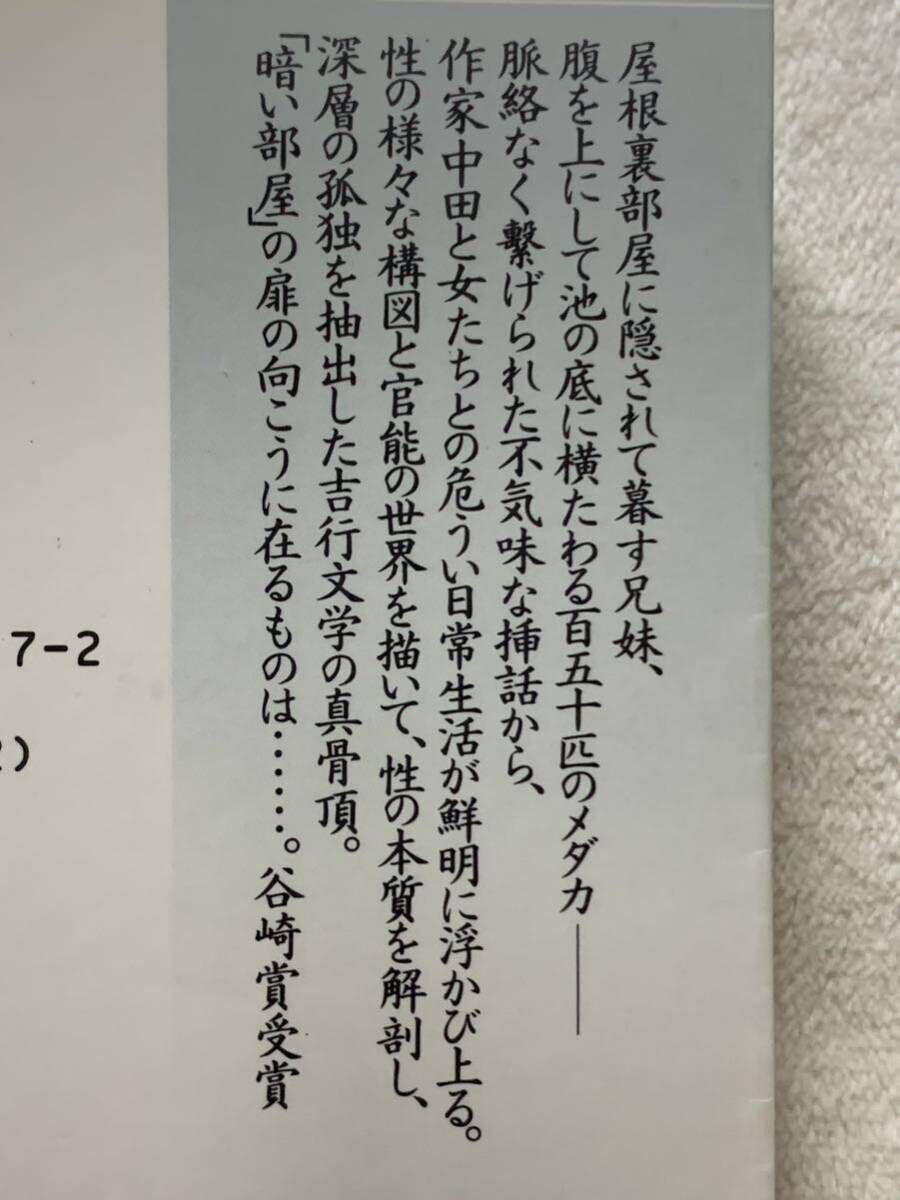 屋根裏部屋に隠されて暮す兄妹、
腹を上にして池の底に横たわる百五十匹のメダカ――
脈絡なく繋げられた不気味な挿話から、
作家中田と女たちとの危うい日常生活が鮮明に浮かび上る。
性の様々な構図と官能の世界を描いて、性の本質を解剖し、
深層の孤独を抽出した吉行文学の真骨頂。
「暗い部屋」の扉の向こうに在るものは……。谷崎賞受賞
7-2
2)